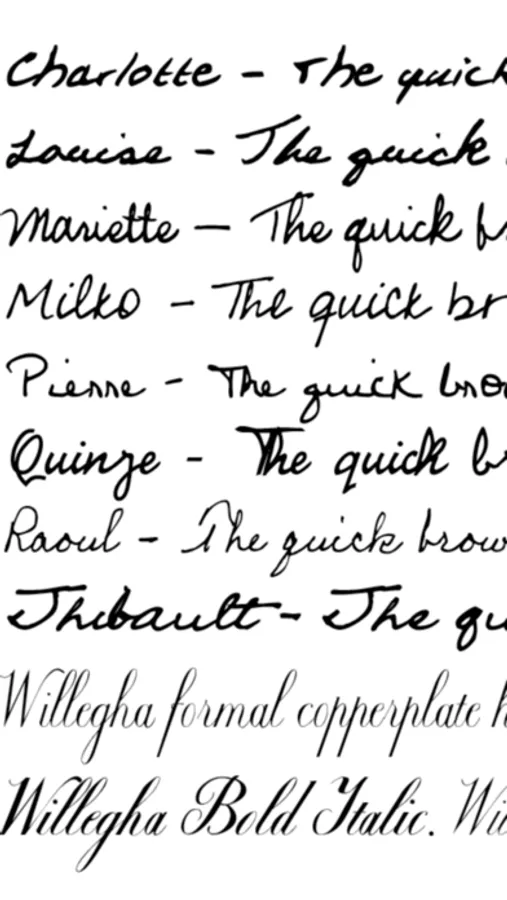 Charlotte - The quick
Louise - The quick
Mariette — The quick b
Milko - The quick br
Pierre - The quick bro
Quinze - The quick b
Raoul - The quick brow
Thibault - The qu
Willegha formal copperplate h
Willegha Bold Italic. Wil